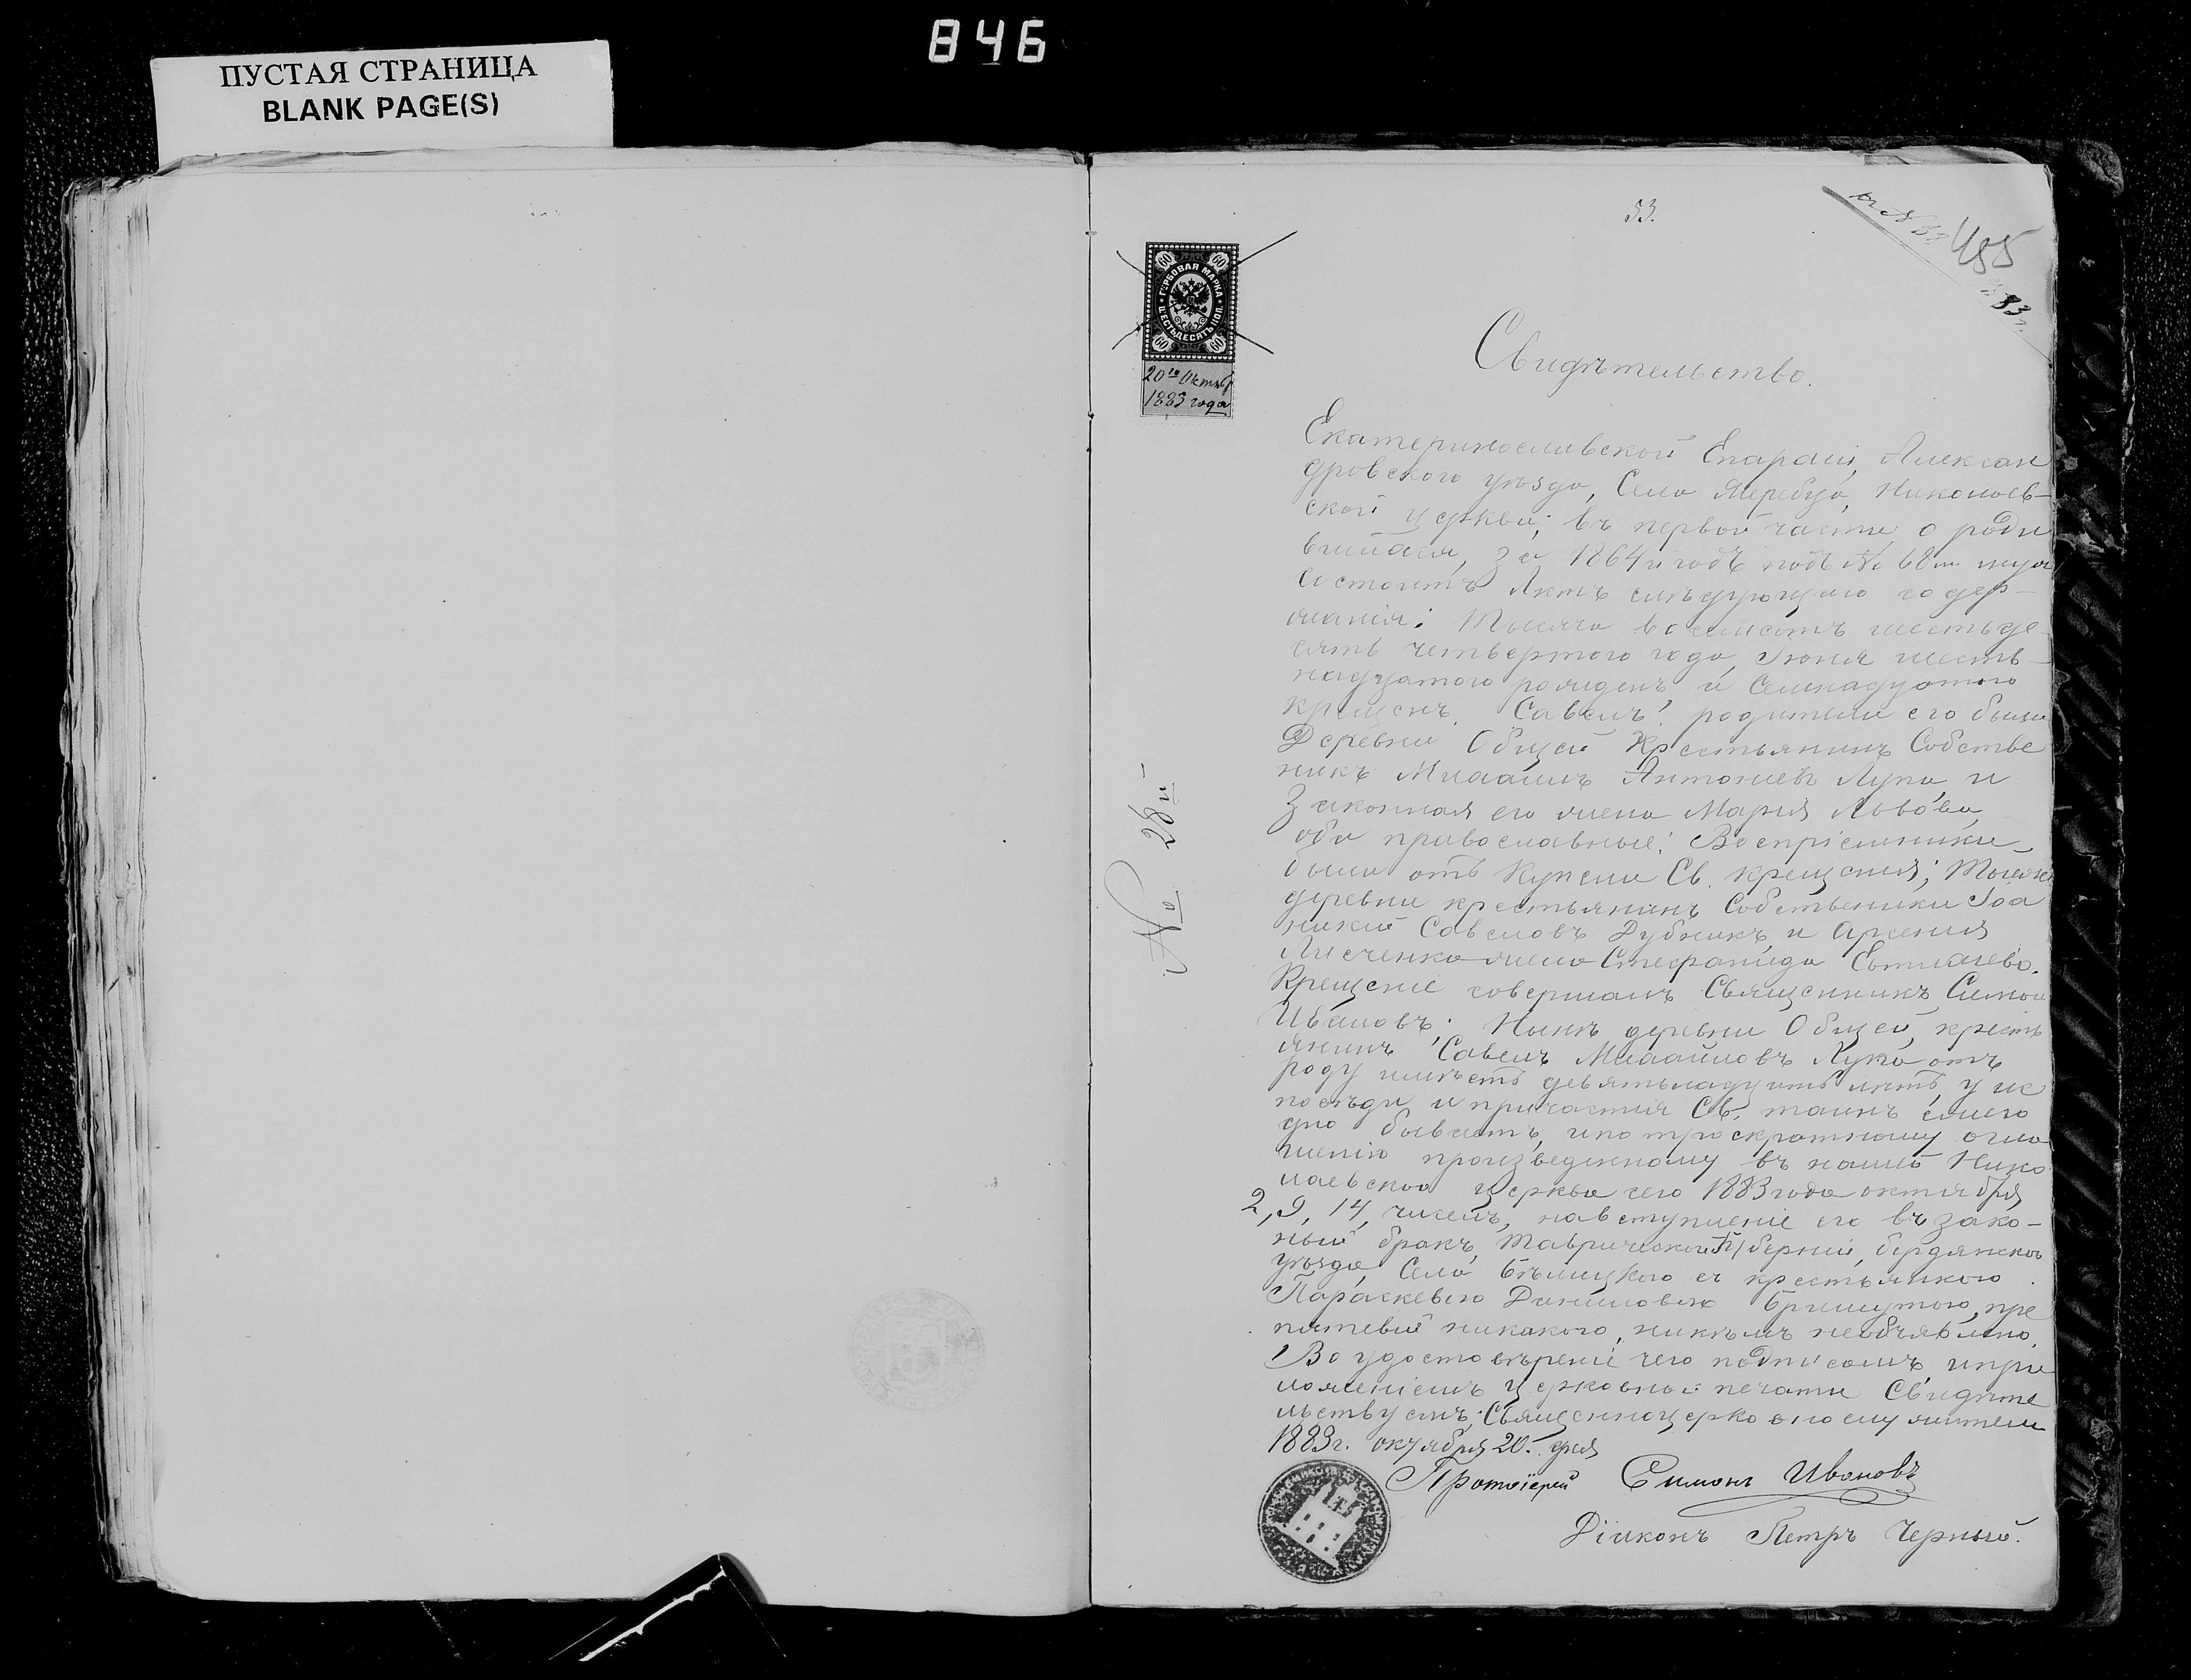 846
ПУСТАЯ СТРАНИЦА
BLANK PAGE(S)
53.
къ № 53
455
83 г.
ГЕРБОВАЯ МАРКА
ШЕСТЬДЕСЯТЪ КОП.
60 60 60 60
20го Октяб
1883 года
№ 28й
Свидѣтельство.
Екатеринославской Епархіи, Алексан
дровскаго уѣзда, Села Жеребца, Николаев-
ской церкви; въ первой части о роди
вшихся, за 1864й годъ подъ № 68м муж
состоитъ Актъ слѣдующаго содер-
жанія: Тысяча восемсотъ шестьде
сятъ четвертого года, Іюня шесть-
надцатого рожденъ и Семнадцатого
крещенъ Савелъ: родители его были
Деревни Общей Крестьянинъ Собстве
никъ Михаилъ Антоніевъ Лупа, и
Законная его жена Марія Львова,
оба православные: Воспріемники
были отъ Купели Св. крещенія; Тоежъ
деревни крестьянинъ Собственики Іоа
никій Савеловъ Дубникъ и Арсенія
Лисченка жена Стефанида
Крещеніе совершалъ Священникъ Симонъ
Ивановъ; Нынѣ деревни Общей, крестъ
янинъ Савелъ Михайловъ Лупа отъ
роду имѣетъ девятьнадцать лѣтъ, у ис
повѣди и причастія Св. таинъ ежего
дно бываетъ, и по троекратному огла
шенію произведенному въ нашей Нико
лаевской церкви сего 1883 года октября
2, 9, 14, числъ, на вступленіе его въ зако-
ный бракъ, Таврической Губерніи, бердянскаго
уѣзда, Села Бѣлицкого съ крестьянкою
Параскевіею Даниловою пре
пятствій никакого, никѣмъ необъявлено.
Во удостовѣреніе чего подписомъ и при
ложеніемъ церковной печати Свидѣте
льствуемъ; Священноцерковнослужители
1883г. октября 20. дня
Протоіерей Симонъ Ивановъ
Діаконъ Петръ Черный.